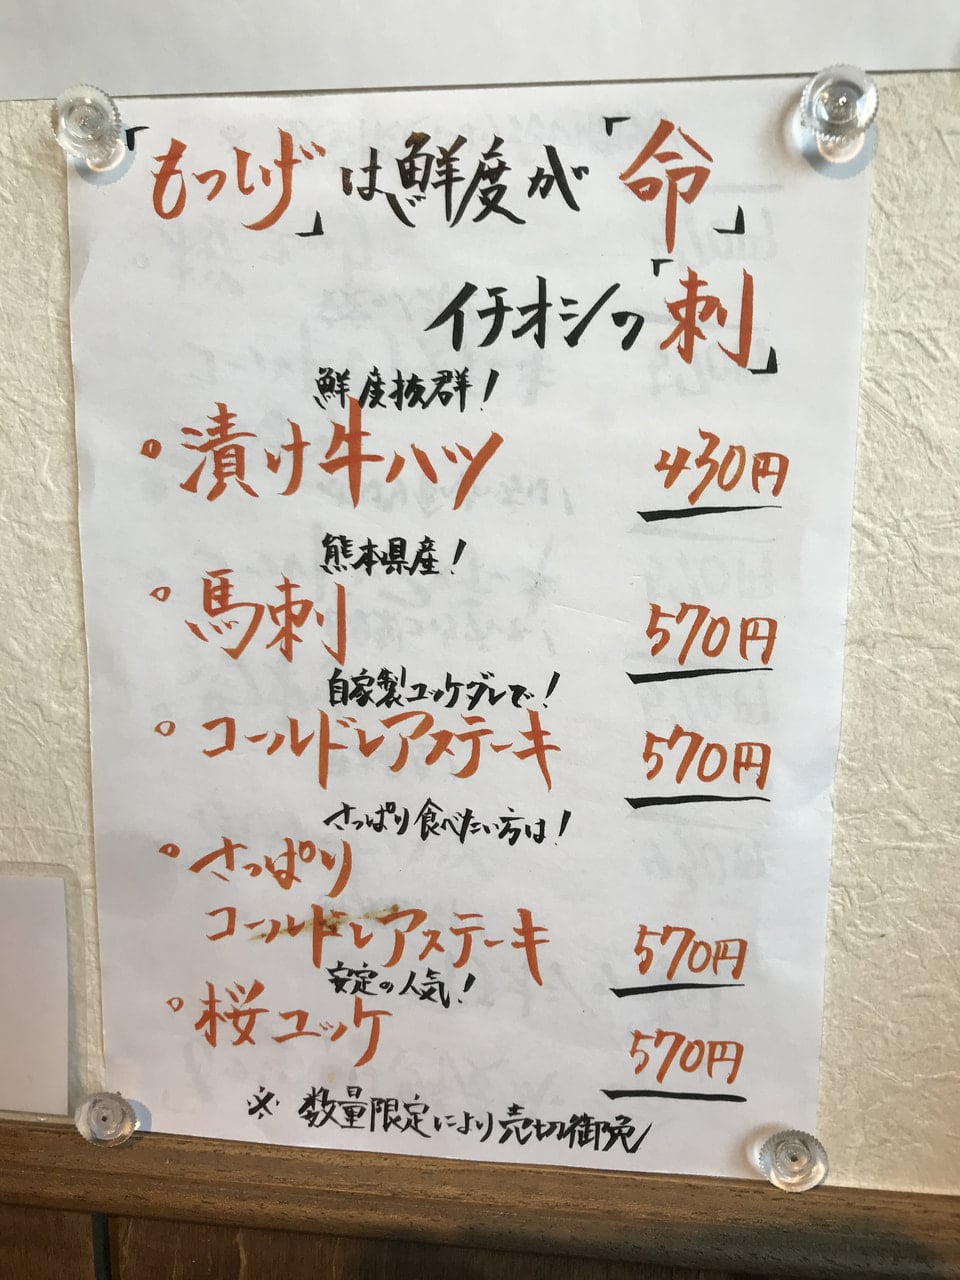 「もっしげ」は鮮度が「命」
イチオシの「刺」
鮮度抜群!
・漬け牛ハツ 430円
熊本県産!
・馬刺 570円
自家製ユッケダレで!
・コールドレアステーキ 570円
さっぱり食べたい方は!
・さっぱり
コールドレアステーキ 570円
安定の人気!
・桜ユッケ 570円
※数量限定により売切御免